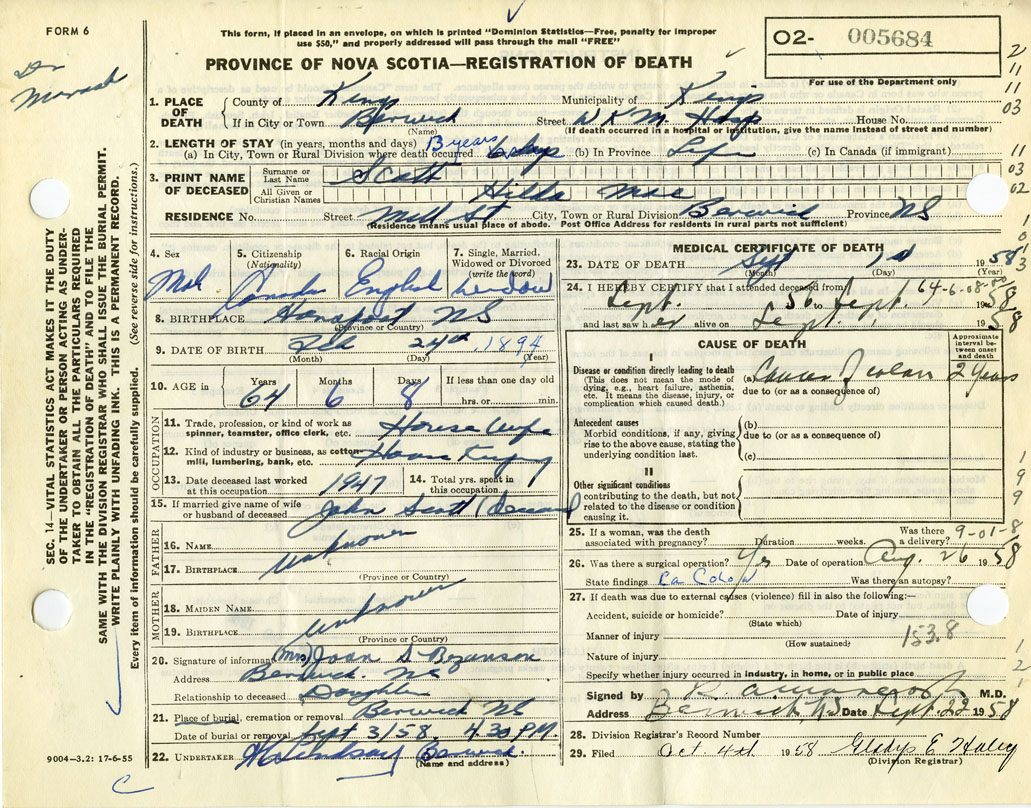 FORM 6
This form, if placed in an envelope, on which is printed "Dominion Statistics—Free, penalty for improper
use $50," and properly addressed will pass through the mail "FREE"
O2- 005684
For use of the Department only
PROVINCE OF NOVA SCOTIA—REGISTRATION OF DEATH
Dr
1. PLACE OF DEATH
County of Kings Municipality of Kings
If in City or Town Berwick Street W K M Hosp House No.
(Name) (If death occurred in a hospital or institution, give the name instead of street and number)
2. LENGTH OF STAY (in years, months and days) 13 years
(a) In City, Town or Rural Division where death occurred 6 days (b) In Province Life (c) In Canada (if immigrant)
3. PRINT NAME OF DECEASED
Surname or Last Name Scott
All Given or Christian Names Hilda Mae
RESIDENCE No. Street Mill St City, Town or Rural Division Berwick Province NS
(Residence means usual place of abode. Post Office Address for residents in rural parts not sufficient)
4. Sex
5. Citizenship (Nationality) Canada
6. Racial Origin English
7. Single, Married, Widowed or Divorced (write the word) Widow
8. BIRTHPLACE Hansport NS
(Province or Country)
9. DATE OF BIRTH Feb 24th 1894
(Month) (Day) (Year)
10. AGE in Years Months Days If less than one day old
64 6 8 hrs. or min.
OCCUPATION
11. Trade, profession, or kind of work as
spinner, teamster, office clerk, etc. House Wife
12. Kind of industry or business, as cotton-
mill, lumbering, bank, etc. House Keeping
13. Date deceased last worked at this occupation 1947 14. Total yrs. spent in this occupation
15. If married give name of wife or husband of deceased John Scott (Deceased
FATHER
16. NAME
unknown
17. BIRTHPLACE
(Province or Country)
MOTHER
18. MAIDEN NAME
unknown
19. BIRTHPLACE
(Province or Country)
20. Signature of informant (Mrs) Joan S Bezanson
Address Berwick NS
Relationship to deceased Daughter
21. Place of burial, cremation or removal Berwick NS
Date of burial or removal Sept 3/58 4.30 P.M.
22. UNDERTAKER Berwick
(Name and address)
9004—3.2: 17-6-55
MEDICAL CERTIFICATE OF DEATH
23. DATE OF DEATH Sept 1st 1958
(Month) (Day) (Year)
24. I HEREBY CERTIFY that I attended deceased from
Sept. 56 to Sept. 1 1958
64-6-08-80
and last saw her alive on Sept. 1, 1958
CAUSE OF DEATH
Approximate interval between onset and death
I
Disease or condition directly leading to death
(This does not mean the mode of
dying, e.g., heart failure, asthenia,
etc. It means the disease, injury, or
complication which caused death.)
(a) Cancer of colon 2 Years
due to (or as a consequence of)
Antecedent causes
Morbid conditions, if any, giving
rise to the above cause, stating the
underlying condition last.
(b)
due to (or as a consequence of)
(c)
II
Other significant conditions
contributing to the death, but not
related to the disease or condition
causing it.
25. If a woman, was the death associated with pregnancy? Duration weeks. Was there a delivery?
9-01-8
26. Was there a surgical operation? Yes Date of operation Aug. 26 1958
State findings Ca Colon Was there an autopsy?
27. If death was due to external causes (violence) fill in also the following:—
Accident, suicide or homicide? Date of injury
(State which)
Manner of injury 153.8
(How sustained)
Nature of injury
Specify whether injury occurred in industry, in home, or in public place
Signed by M.D.
Address Berwick, NS Date Sept. 22 1958
28. Division Registrar's Record Number
29. Filed Oct. 4th 1958 Gladys E Haley
(Division Registrar)
SEC. 14—VITAL STATISTICS ACT MAKES IT THE DUTY
OF THE UNDERTAKER OR PERSON ACTING AS UNDER-
TAKER TO OBTAIN ALL THE PARTICULARS REQUIRED
IN THE "REGISTRATION OF DEATH" AND TO FILE THE
SAME WITH THE DIVISION REGISTRAR WHO SHALL ISSUE THE BURIAL PERMIT.
WRITE PLAINLY WITH UNFADING INK. THIS IS A PERMANENT RECORD.
Every item of information should be carefully supplied. (See reverse side for instructions.)
2
11
11
03
11
03
02
1
0
3
1
9
9
1
2
1